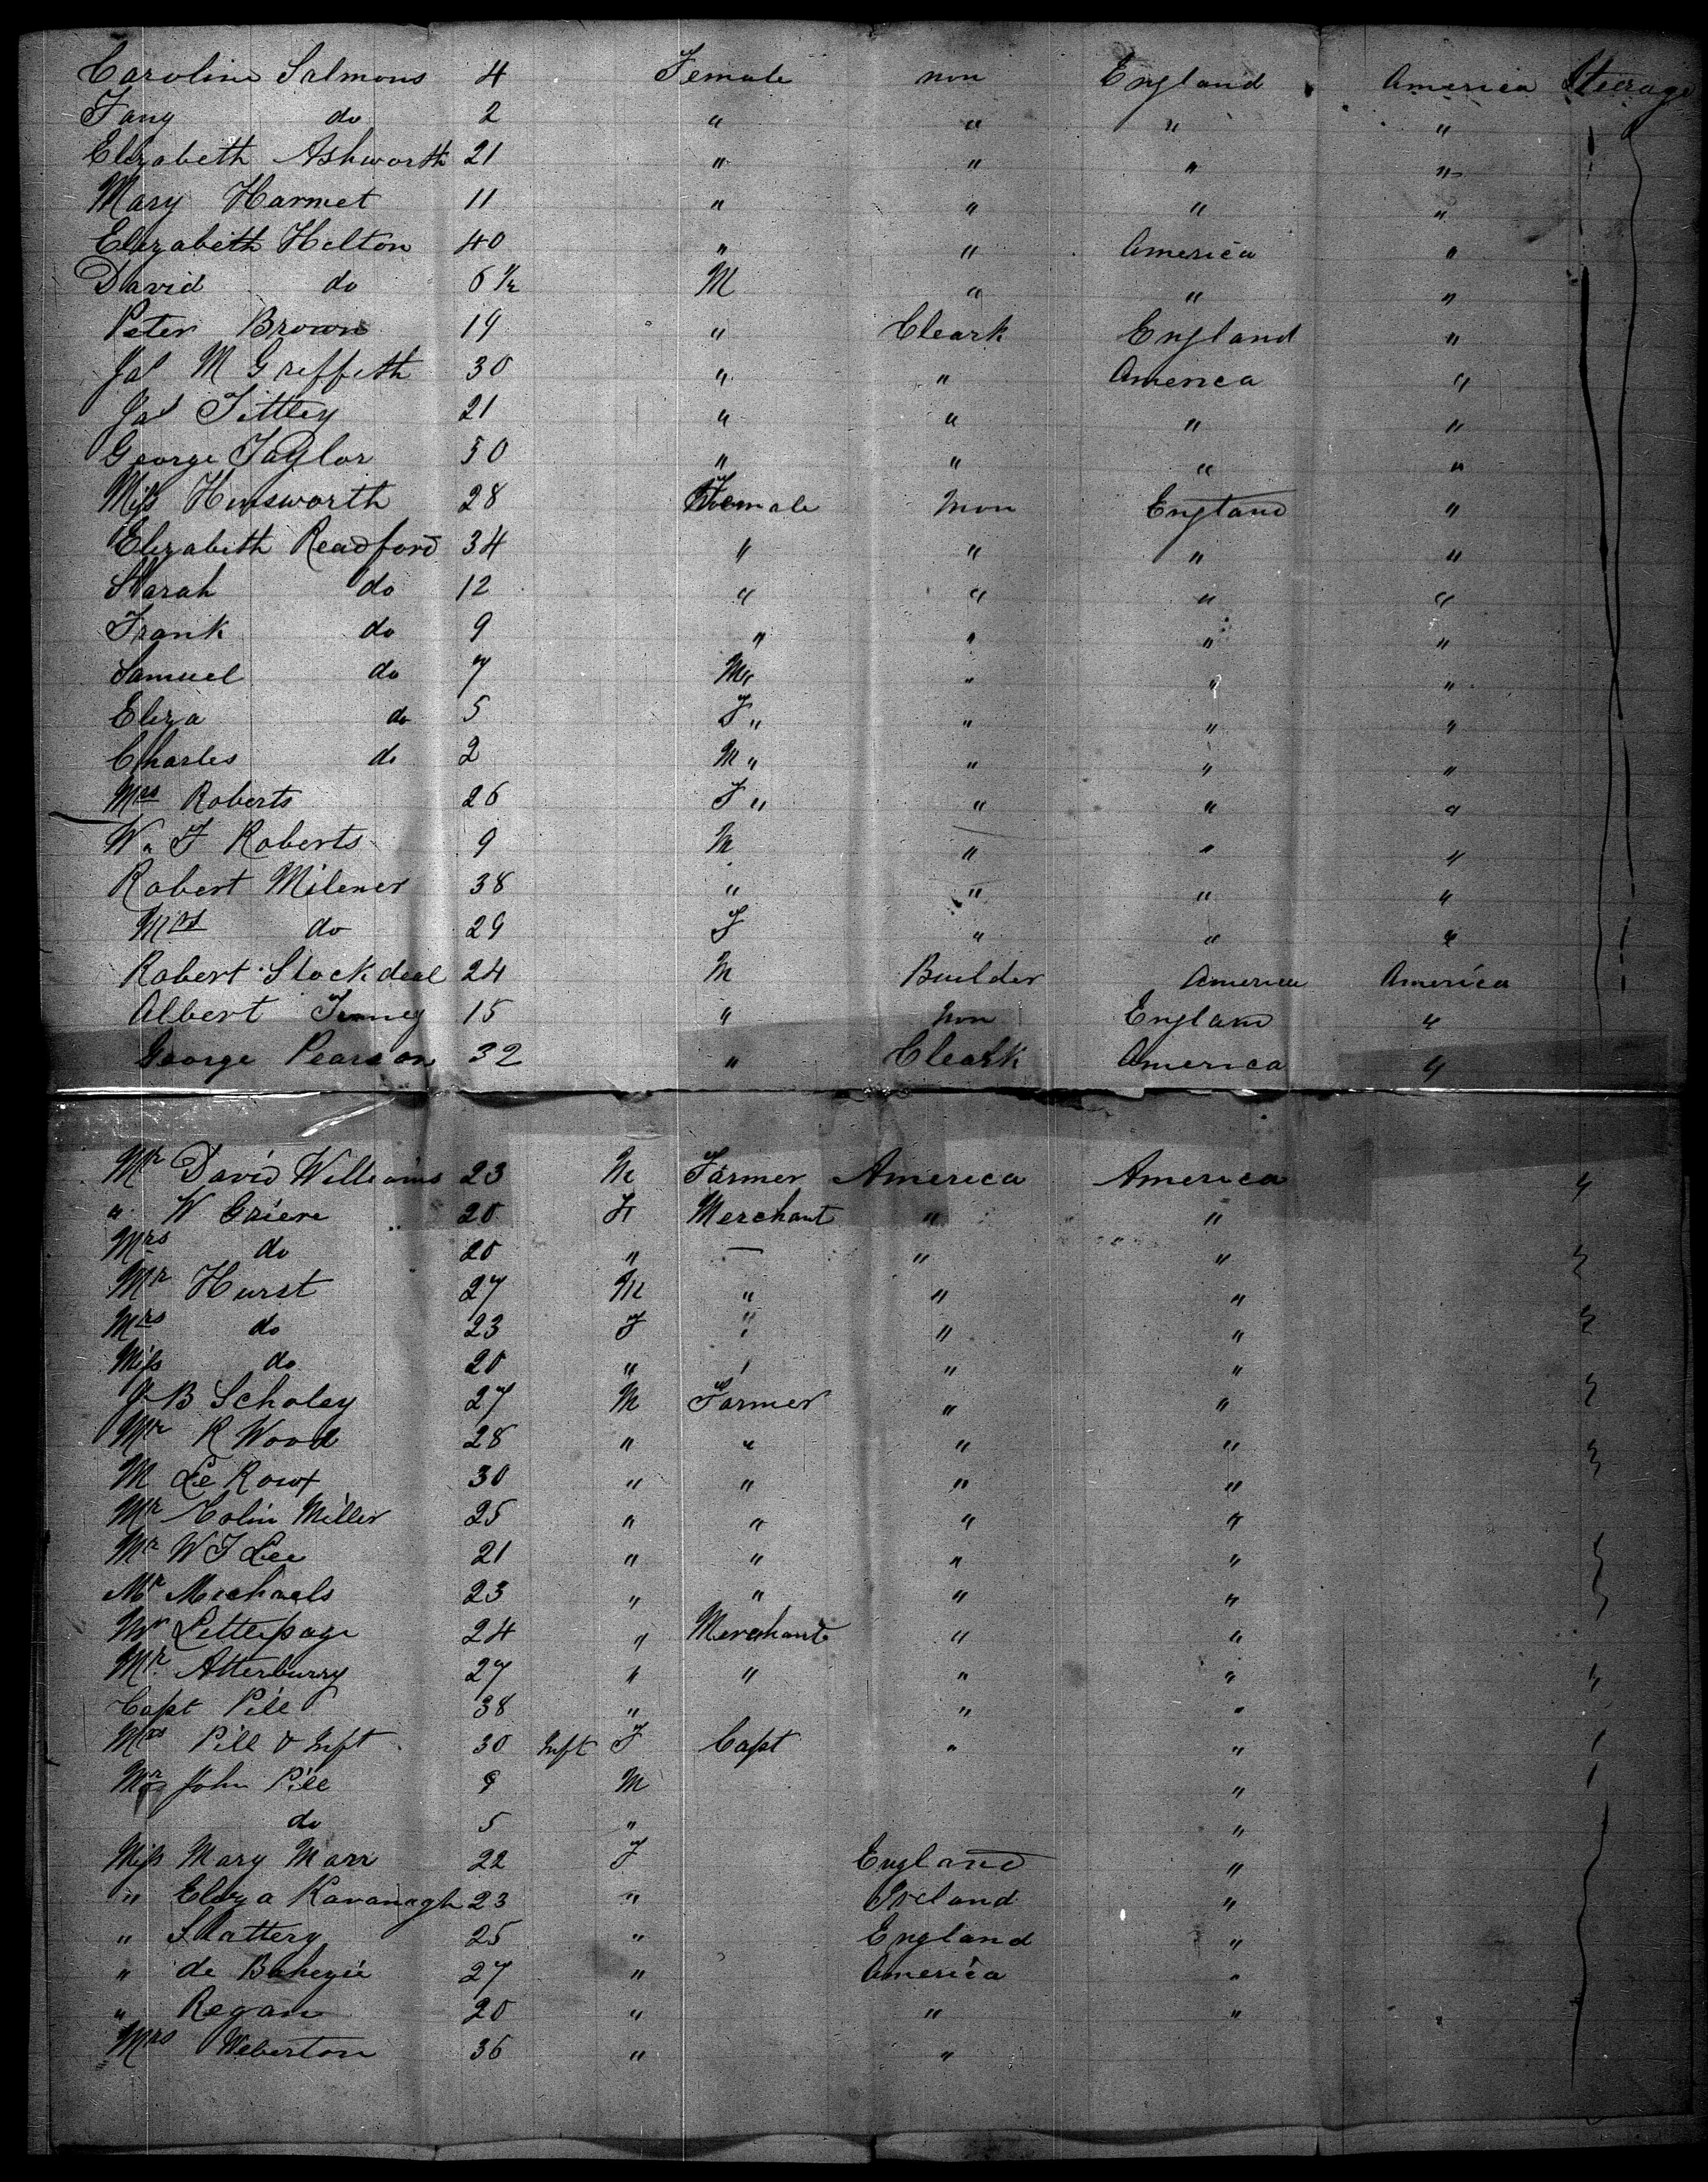 Caroline Salmons 4 Female non England America Steerage
Fany do 2 " " " "
Elizabeth Ashworth 21 " " " "
Mary Harmet 11 " " " "
Elizabeth Helton 40 " " America "
David do 6 ½ M " " "
Peter Brown 19 " Cleark England "
Jas M Greffeth 30 " " America "
Jas Tittley 21 " " " "
George Taylor 50 " " " "
Miss Hinsworth 28 Female Non England "
Elizabeth Readford 34 " " " "
Sarah do 12 " " " "
Frank do 9 " " " "
Samuel do 7 M " " " "
Eliza do 5 F " " " "
Charles do 2 M " " " "
Mrs Roberts 26 F " " " "
Wm F Roberts 9 M " " "
Robert Milener 38 " " " "
Mrs do 29 F " " "
Robert Stockdeal 24 M Builder America America
Albert 15 " Non England "
George Pearson 32 " Cleark America "
Mr David Williams 23 M Farmer America America "
" W Griere 20 Merchant " "
Mrs do 20 " — " "
Mr Hurst 27 M " " "
Mrs do 23 F " " "
Miss do 20 " " " "
J B Scholey 27 M Farmer " "
Mr R Wood 28 " " " "
M Le Rowx 30 " " " "
Mr Colin Miller 25 " " " "
Mr W F Lee 21 " " " "
Mr Michaels 23 " " " "
Mr Letterpage 24 " Merchant " "
Mr Atterburry 27 " " " "
Capt Pill 38 " " "
Mrs Pill & Inft 30 Inft F Capt " "
Mr John Pill 9 M "
do 5 " "
Miss Mary Marr 22 F England "
" Eliza Kavanagh 23 " Ireland "
" Slattery 25 " England "
" de 27 " America "
" Regan 20 " " "
Mrs Weberton 36 " "